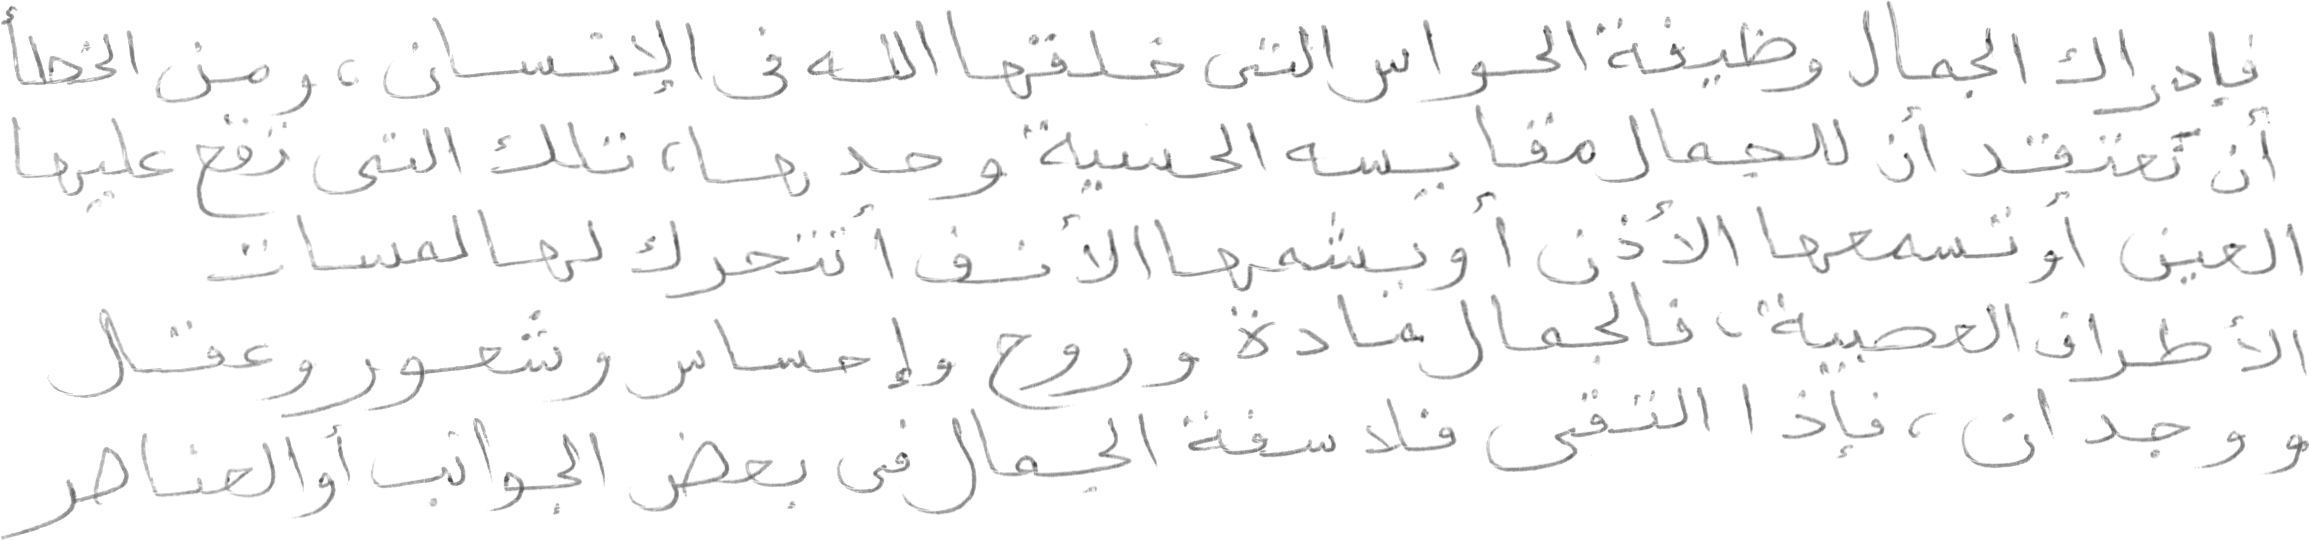 فإدراك الجمال وظيفة الحواس التى خلقها الله فى الإنسان، ومن الخطأ
أن تعتقد أن للجمال مقاييسه الحسية وحدها، تلك التى تقع عليها
العين أو تسمعها الأذن أو يشمها الأنف أ تتحرك لها لمسات
الأطراف العصبية، فالجمال مادة وروح وإحساس وشعور وعقل
ووجدان، فإذا التقى فلاسفة الجمال فى بعض الجوانب أو العناصر